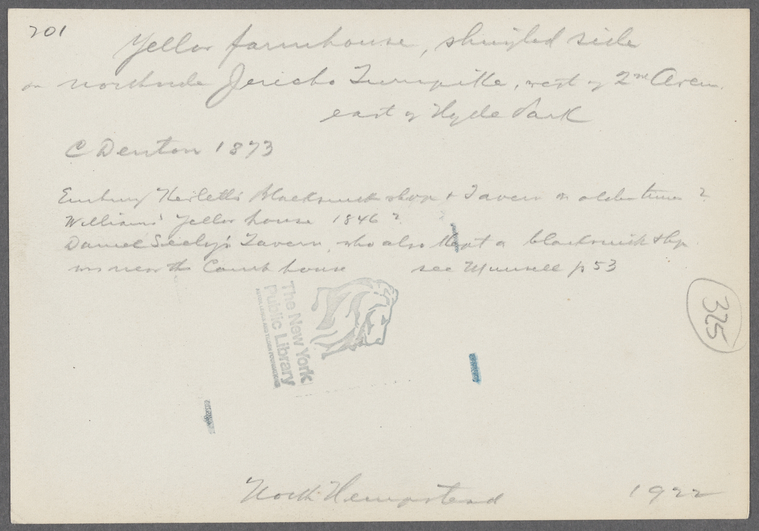 201
Yellow farmhouse, shingled side
on northside Jericho Turnpike, west of 2nd Aven.
east of Hyde Park
C Denton 1873
Blacksmith shop & Tavern in olden time ?
Williams' Yellow house 1846 ?
Daniel Seely's Tavern, who also kept a blacksmith shop
was near the Court house see Munsell p 53
The New York
Public Library
325
North Hempstead 1922